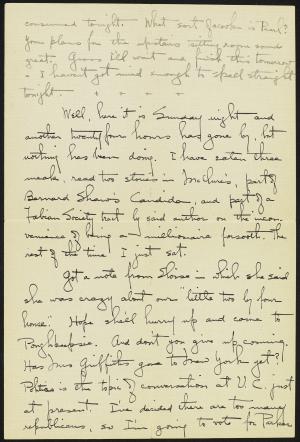 consumed tonight. What sort is Paul?
Your plans for the upstairs sitting room sound
great. Guess I'll wait and finish this tomorrow
- I haven't got mind enough to spell straight
tonight. + + + +
Well, here it is Sunday night and
another twenty four hours has gone by, but
nothing has been doing. I have eaten three
meals, read two stories in McClure's, part of
Bernard Shaw's Candida, and part of a
Fabian Society tract by said author on the incon-
venience of being a millionaire forsooth. The
rest of the time I just sat.
Got a note from Eloise in which she said
she was crazy about our "little two by four
house". Hope she'll hurry up and come to
Poughkeepsie. And don't you give up coming.
Has Mrs Griffiths gone to New York yet?
Politics is the topic of conversation at V.C. just
at present. I've decided there are too many
republicans, so I'm going to vote for Parker